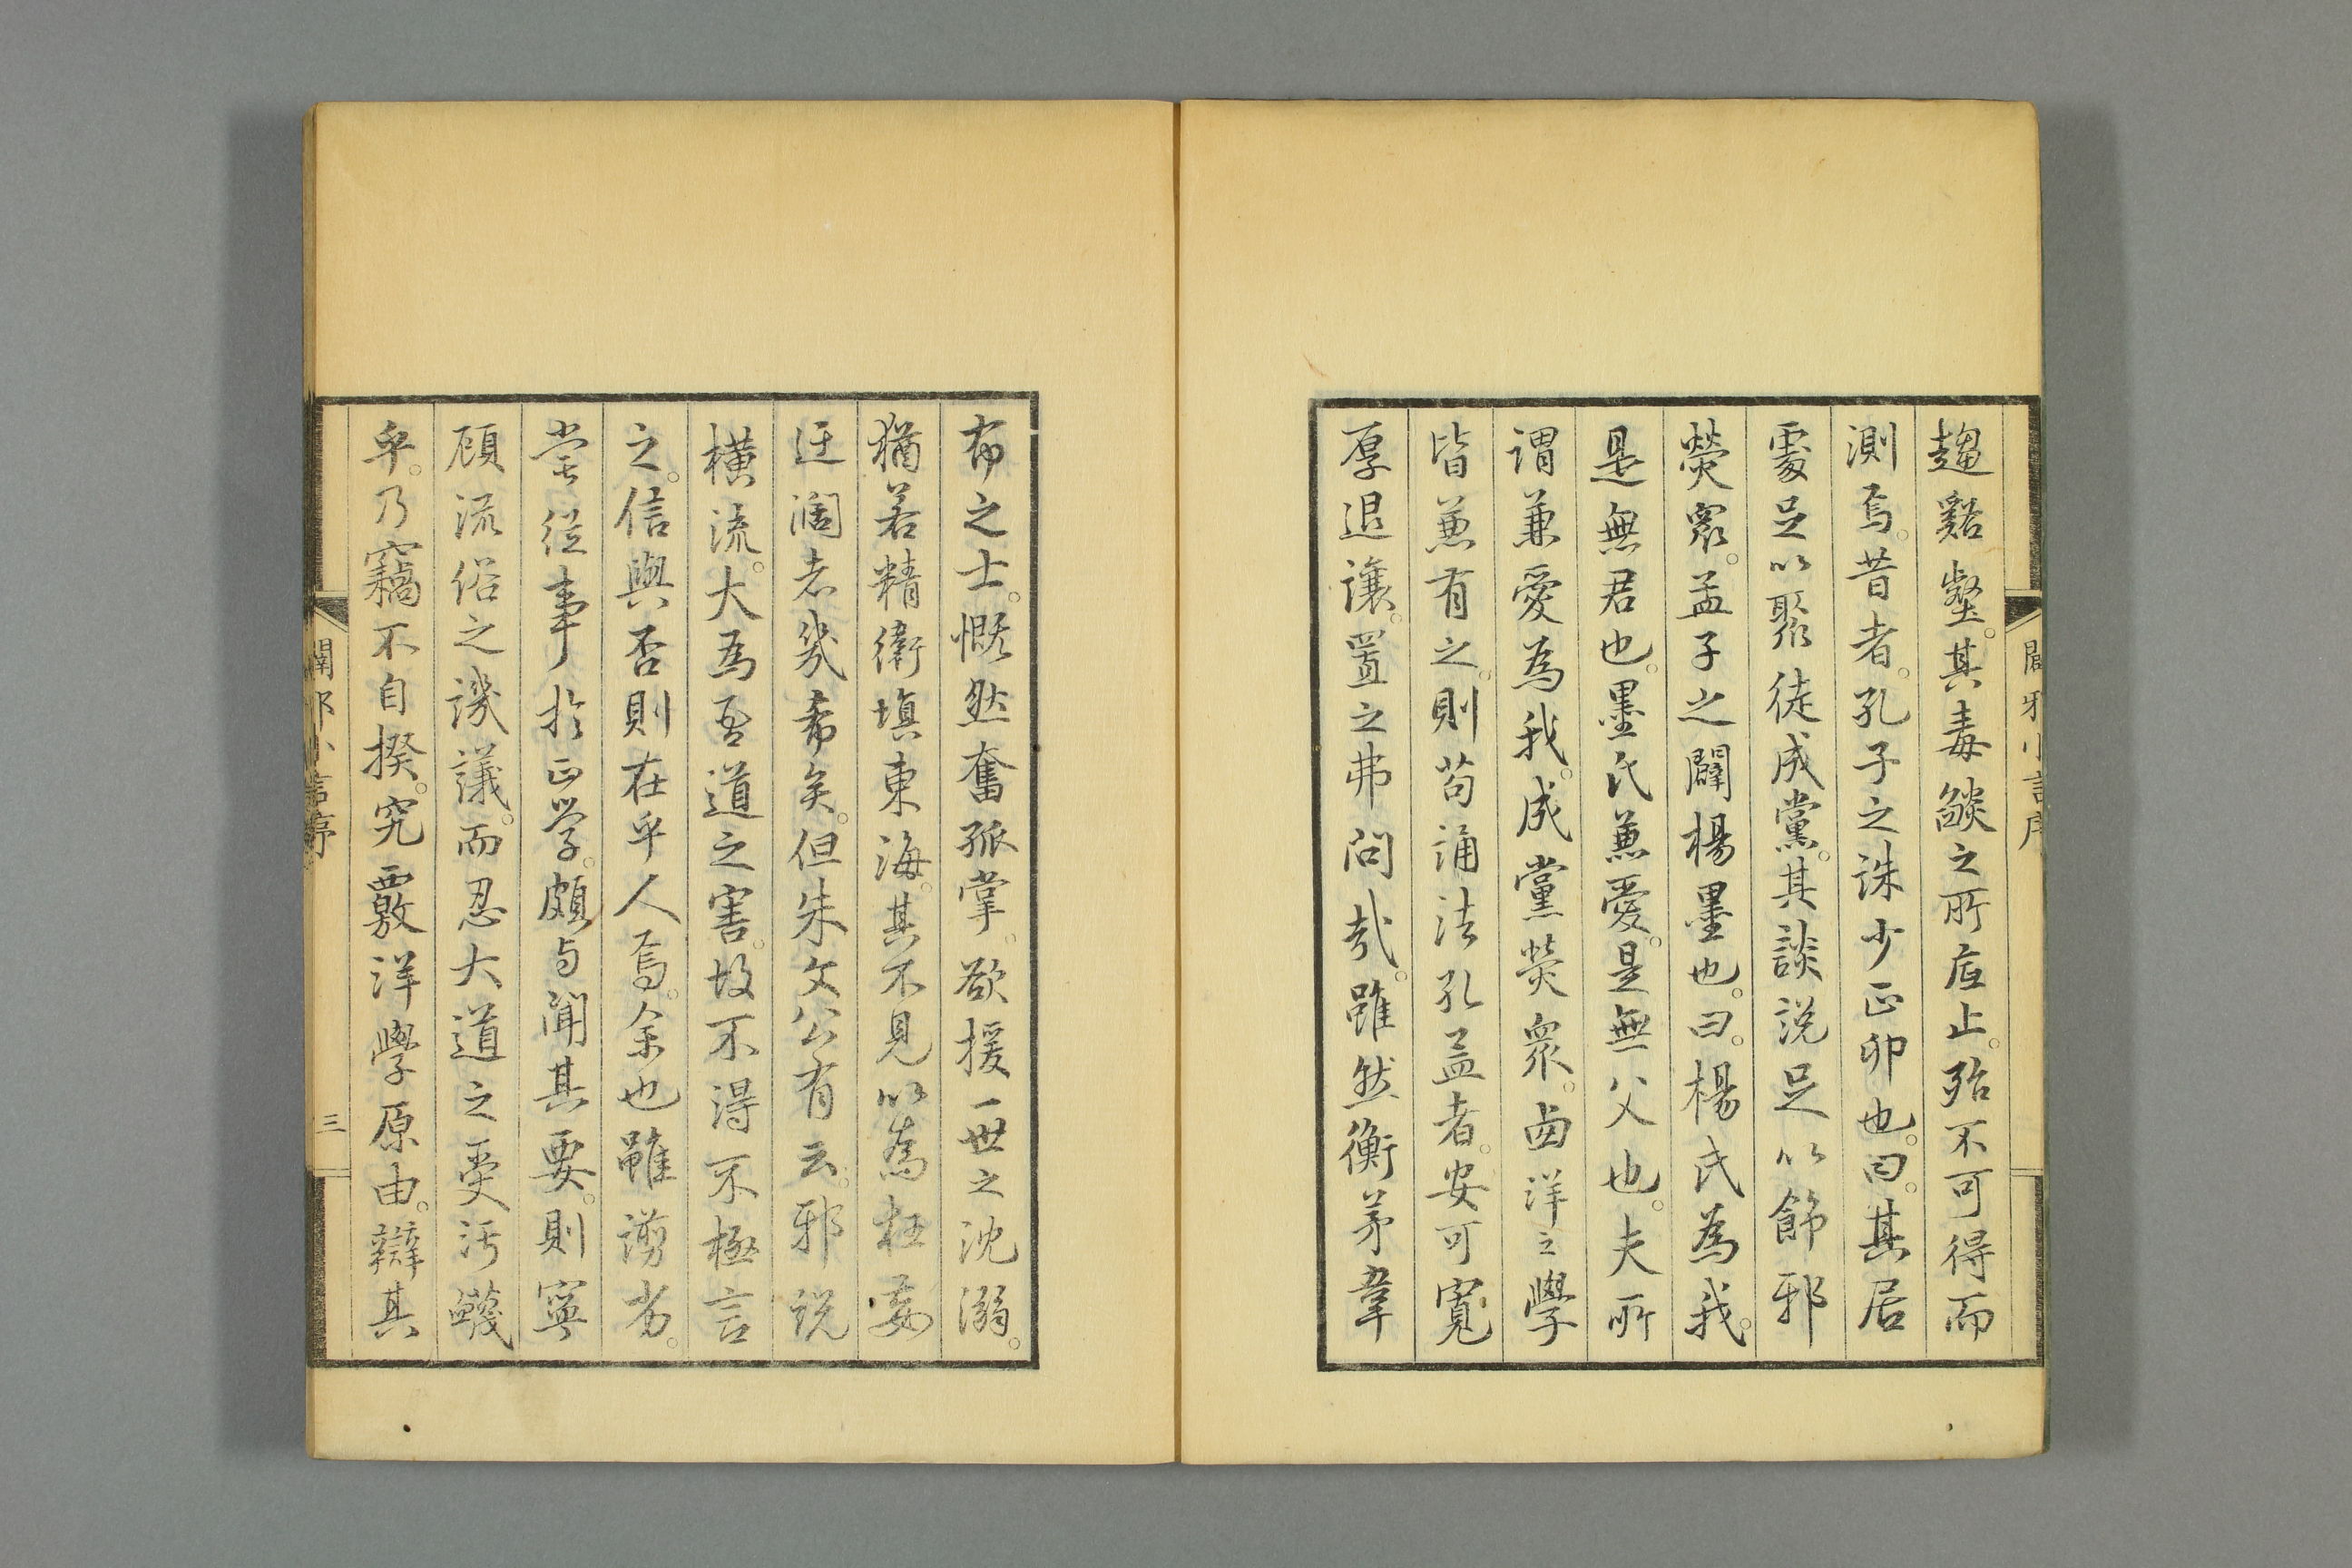 趨谿壑。其毒燄之所底止。殆不可得而
測焉。昔者。孔子之誅少正卯也。曰。其居
處足以聚徒成黨。其談説足以飾邪
熒衆。孟子之闢楊墨也。曰。楊氏為我。
是無君也。墨氏兼愛。是無父也。夫所
謂兼愛為我。成黨熒衆。西洋之學
皆兼有之。則苟誦法孔孟者。安可寬
厚退讓。置之弗問哉。雖然衡茅韋
布之士。慨然奮孤掌。欲援一世之沈溺。
猶若精衛塡東海。其不見以為狂妄
迂濶者幾希矣。但朱文公有云。邪説
横流。大為吾道之害。故不得不極言
之。信與否則在乎人焉。余也雖謭劣。
嘗従事於正学。頗与聞其要。則寧
顧流俗之譏議。而忍大道之受汚衊
乎。乃竊不自揆。究覈洋學原由。辯其
闢邪小言序
三